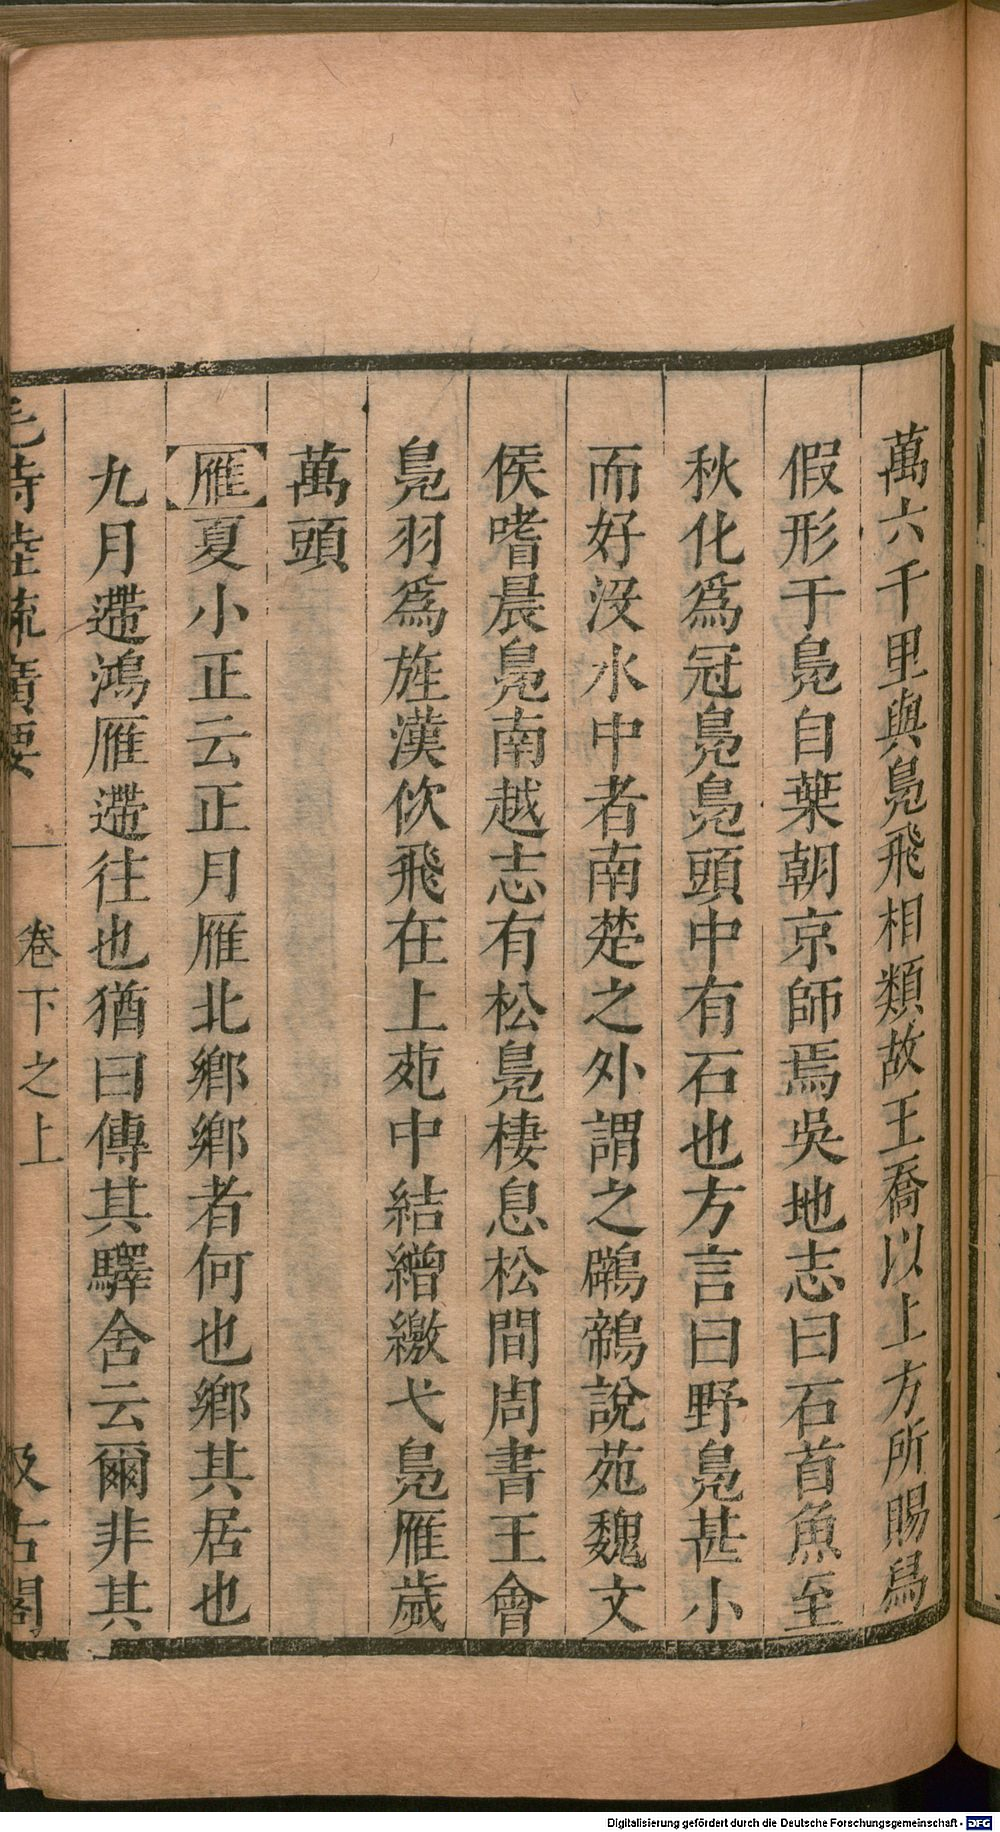 萬六千里與鳧飛相類故王喬以上方所賜舄
假形于鳧自葉朝京師焉吳地志曰石首魚至
秋化爲冠鳧鳧頭中有石也方言曰野鳧甚小
而好沒水中者南楚之外謂之鸊鷉說苑魏文
侯嗜晨鳧南越志有松鳧棲息松間周書王會
鳧羽爲旌漢佽飛在上苑中結繒繳弋鳧雁歲
萬頭
雁夏小正云正月雁北鄉鄉者何也鄉其居也
九月遰鴻雁遰往也猶曰傳其驛舍云爾非其
毛詩陸疏廣要 卷下之上 汲古閣
Digitalisierung gefördert durch die Deutsche Forschungsgemeinschaft - DFG